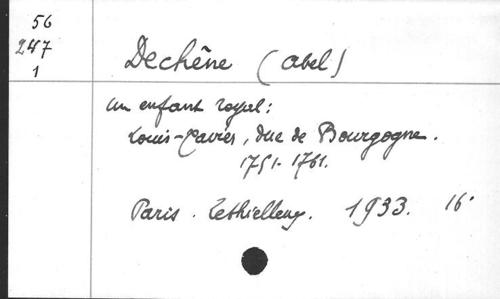 56
247
1
Dechêne (Abel)
Un enfant royal:
Louis-Xavier, duc de Bourgogne.
1751-1761.
Paris. Lethielleux. 1933. 16°